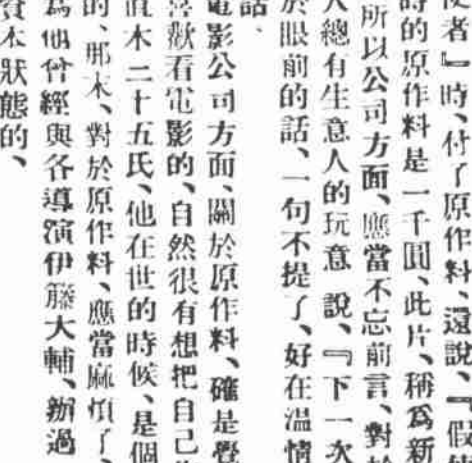 使者』時、付了原作料、還說、『假使
時的原作料是一千圓、此片、稱爲新
所以公司方面、應當不忘前言、對於
人總有生意人的玩意 說、『下一次
於眼前的話、一句不提了、好在溫情
話、
電影公司方面、關於原作料、確是覺
喜歡看電影的、自然很有想把自己
直木二十五氏、他在世的時候、是個
的、那末、對於原作料、應當麻煩了、
爲他曾經與各導演伊籐大輔、辦過
資本狀態的、